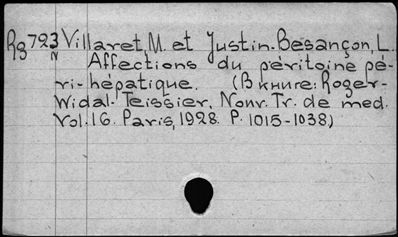 Rg 723 Villaret, M. et Justin-Besançon, L.
N Affections du péritoine pé-
ri-hépatique. (В книге: Roger-
Widal-Teissier, Nouv. Tr. de med.
Vol. 16. Paris, 1928. P. 1015-1038)